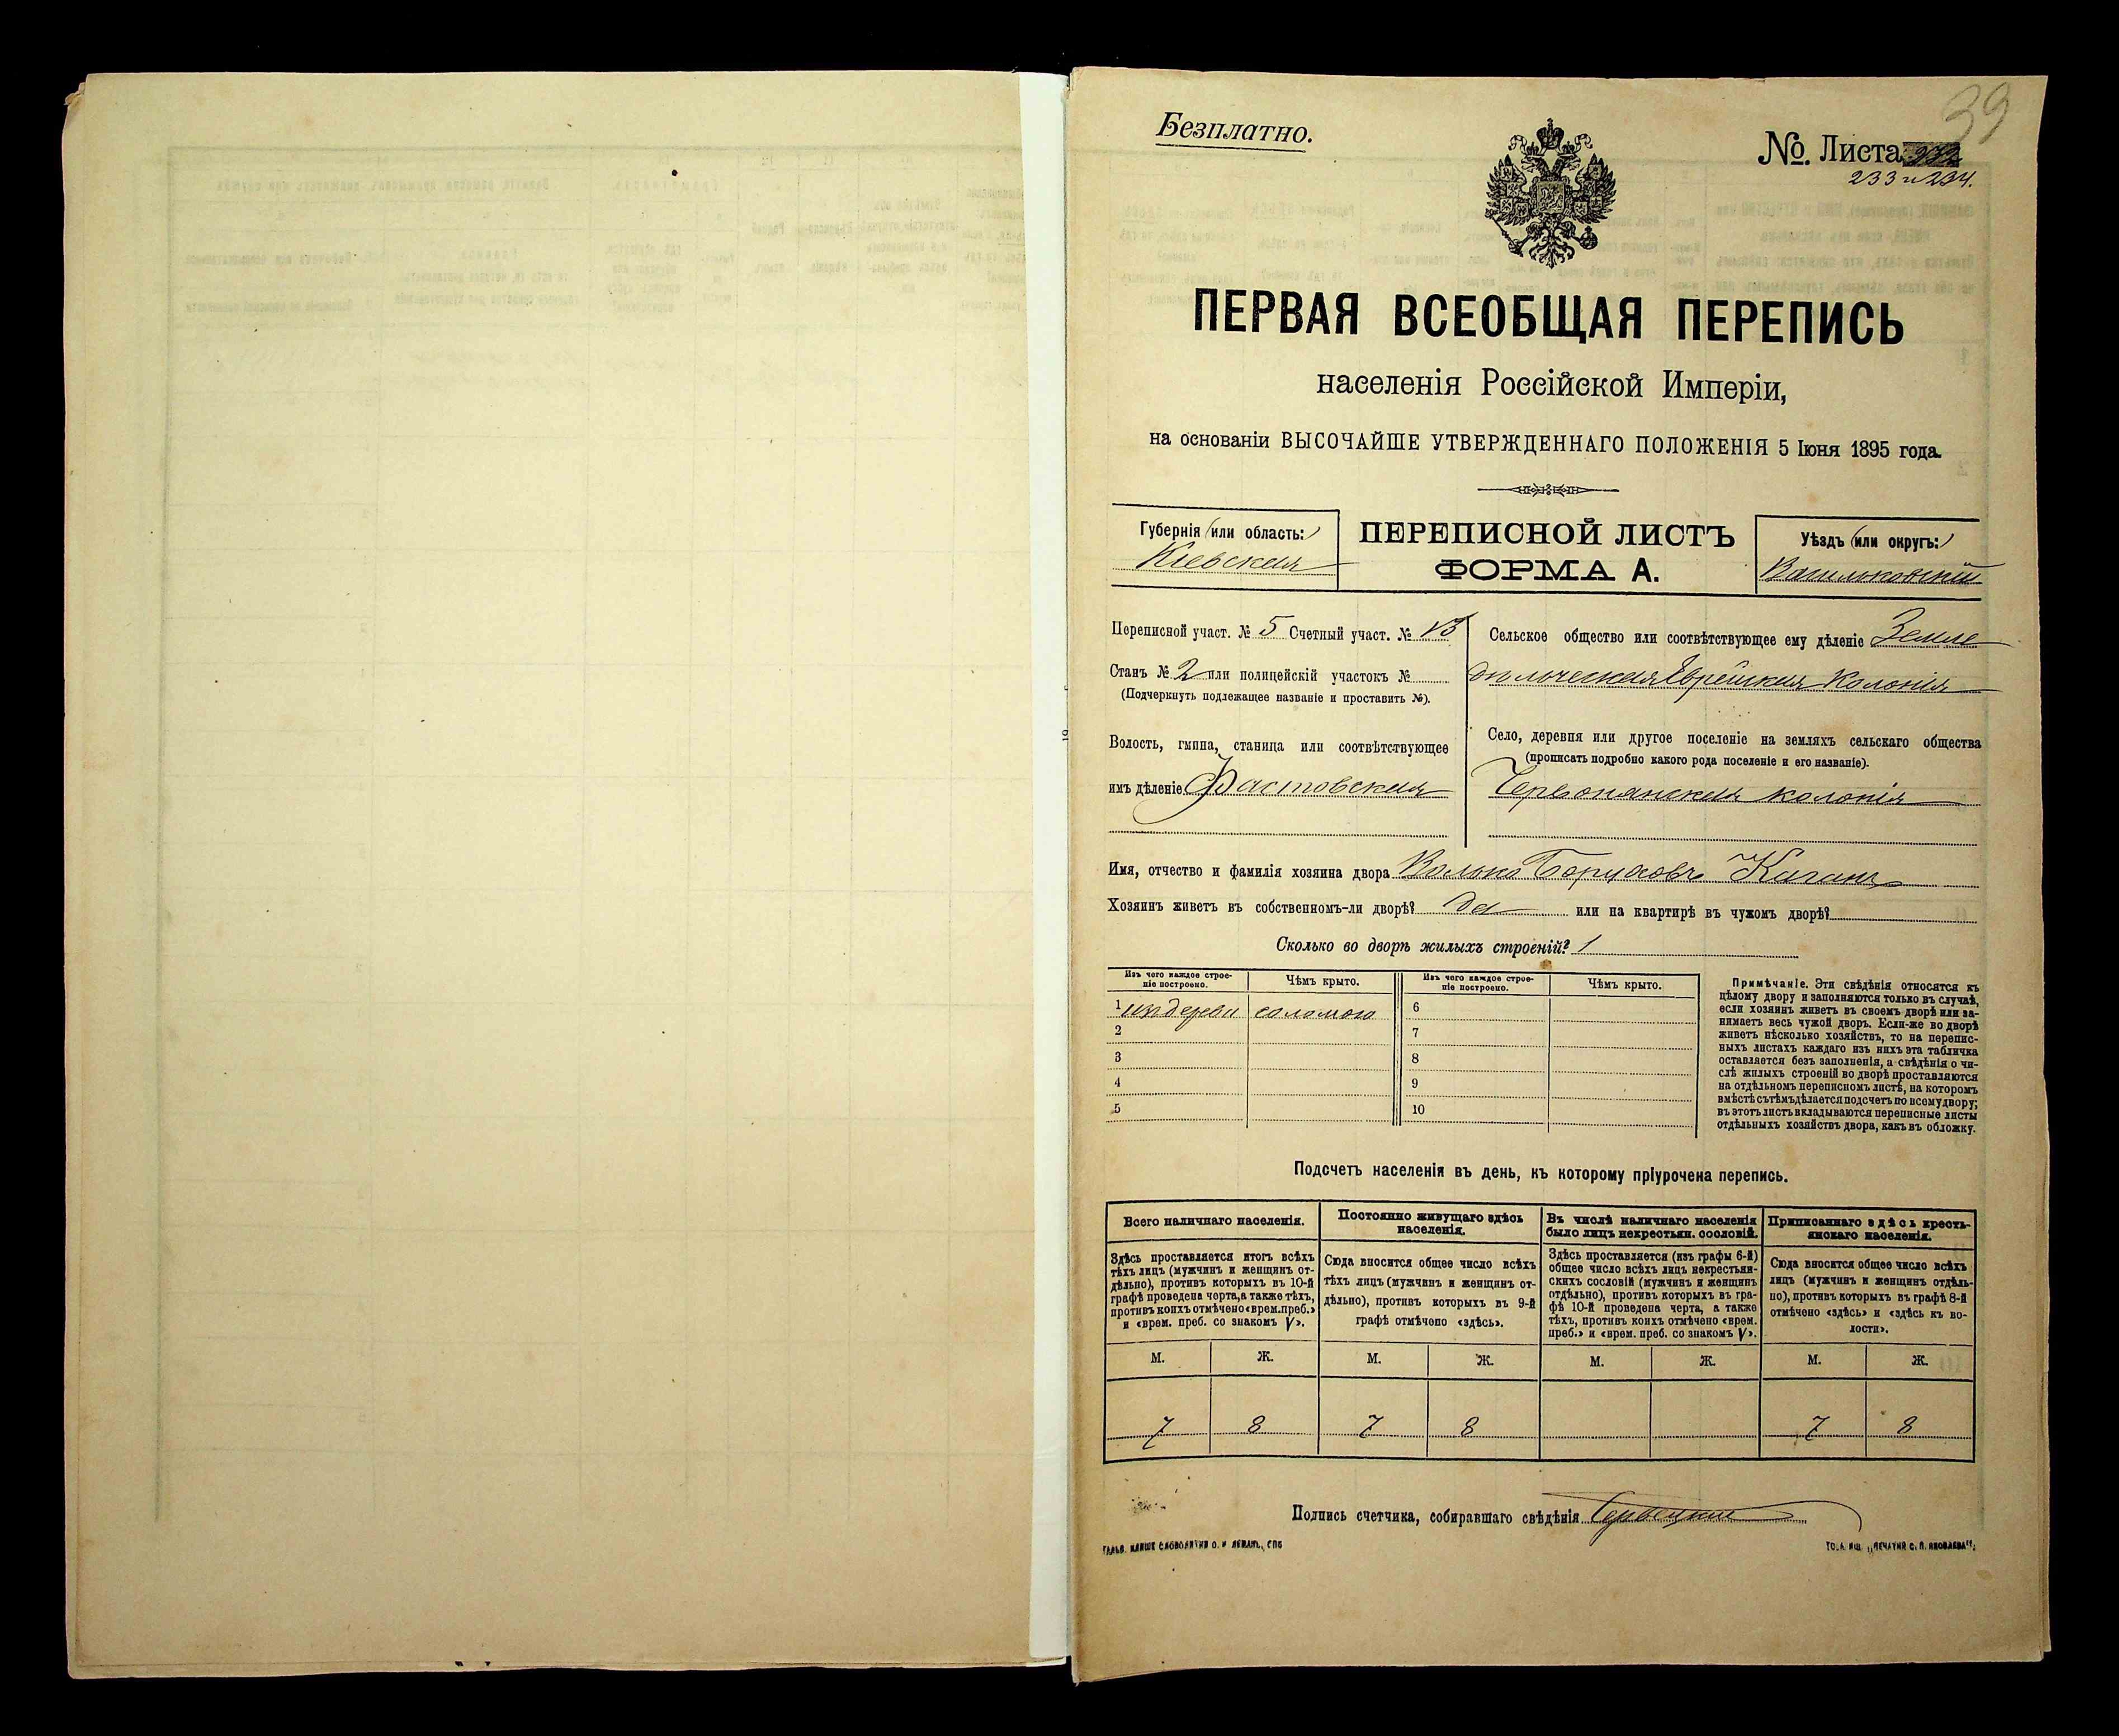 39
Безплатно.
№. Листа
233 и 234.
ПЕРВАЯ ВСЕОБЩАЯ ПЕРЕПИСЬ
населенія Россійской Имперіи,
на основаніи ВЫСОЧАЙШЕ УТВЕРЖДЕННАГО ПОЛОЖЕНІЯ 5 Іюня 1895 года.
Губернія (или область:)
Кіевская
ПЕРЕПИСНОЙ ЛИСТЪ
ФОРМА А.
Уѣздъ (или округъ:)
Васильковскій
Переписной участ. № 5 Счетный участ. № 13
Станъ № 2 или полицейскій участокъ №
(Подчеркнуть подлежащее названіе и проставить №).
Волость, гмина, станица или соотвѣтствующее
имъ дѣленіе Фастовская
Сельское общество или соотвѣтствующее ему дѣленіе Земле
дѣльческая Еврейская Колонія
Село, деревня или другое поселеніе на земляхъ сельскаго общества
(прописать подробно какого рода поселеніе и его названіе).
Червонянская колонія
Имя, отчество и фамилія хозяина двора Волько Боруховъ Каганъ
Хозяинъ живетъ въ собственномъ-ли дворѣ? да или на квартирѣ въ чужомъ дворѣ?
Сколько во дворѣ жилыхъ строеній? 1
Изъ чего каждое строе-
ніе построено.
Чѣмъ крыто.
Изъ чего каждое строе-
ніе построено.
Чѣмъ крыто.
1 изъ дерева соломою 6
2 7
3 8
4 9
5 10
Примѣчаніе. Эти свѣдѣнія относятся къ
цѣлому двору и заполняются только въ случаѣ,
если хозяинъ живетъ въ своемъ дворѣ или за-
нимаетъ весь чужой дворъ. Если-же во дворѣ
живетъ нѣсколько хозяйствъ, то на перепис-
ныхъ листахъ каждаго изъ нихъ эта табличка
оставляется безъ заполненія, а свѣдѣнія о чи-
слѣ жилыхъ строеній во дворѣ проставляются
на отдѣльномъ переписномъ листѣ, на которомъ
вмѣстѣ съ тѣмъ дѣлается подсчетъ по всему двору;
въ этотъ листъ вкладываются переписные листы
отдѣльныхъ хозяйствъ двора, какъ въ обложку.
Подсчетъ населенія въ день, къ которому пріурочена перепись.
Всего наличнаго населенія.
Здѣсь проставляется итогъ всѣхъ
тѣхъ лицъ (мужчинъ и женщинъ от-
дѣльно), противъ которыхъ въ 10-й
графѣ проведена черта, а также тѣхъ,
противъ коихъ отмѣчено «врем. преб.»
и «врем. преб. со знакомъ V».
Постоянно живущаго здѣсь
населенія.
Сюда вносится общее число всѣхъ
тѣхъ лицъ (мужчинъ и женщинъ от-
дѣльно), противъ которыхъ въ 9-й
графѣ отмѣчено «здѣсь».
Въ числѣ наличнаго населенія
было лицъ некрестьян. сословій.
Здѣсь проставляется (изъ графы 6-й)
общее число всѣхъ лицъ некрестьян-
скихъ сословій (мужчинъ и женщинъ
отдѣльно), противъ которыхъ въ гра-
фѣ 10-й проведена черта, а также
тѣхъ, противъ коихъ отмѣчено «врем.
преб.» и «врем. преб. со знакомъ V».
Приписаннаго здѣсь кресть-
янскаго населенія.
Сюда вносится общее число всѣхъ
лицъ (мужчинъ и женщинъ отдѣль-
но), противъ которыхъ въ графѣ 8-й
отмѣчено «здѣсь» и «здѣсь къ во-
лости».
М. Ж. М. Ж. М. Ж. М. Ж.
7 8 7 8 7 8
Подпись счетчика, собиравшаго свѣдѣнія